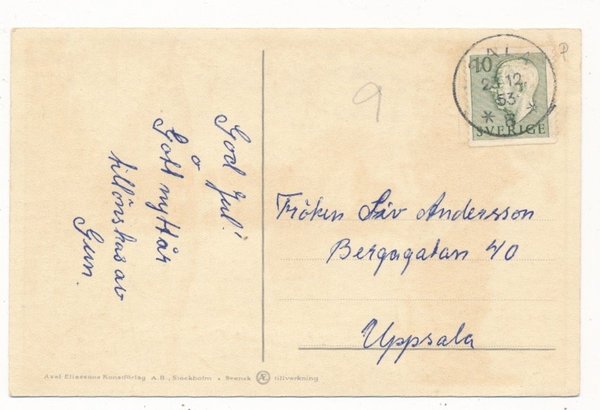 God Jul!
o
Gott nytt år
tillönskas av
Gun.
9
P
10
12
53
* 8 *
SVERIGE
Fröken Siv Andersson
Bergagatan 40
Uppsala
Axel Eliassons Konstförlag A. B., Stockholm • Svensk Æ tillverkning